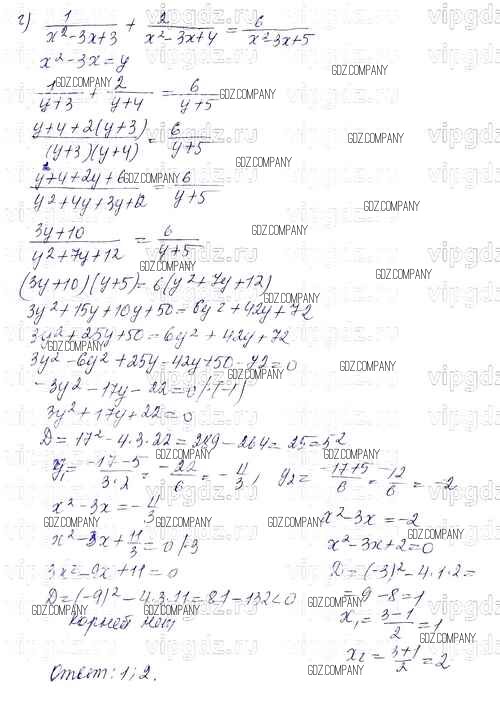 г) 1/(x²-3x+3) + 2/(x²-3x+4) = 6/(x²-3x+5)
x²-3x=y
1/(y+3) + 2/(y+4) = 6/(y+5)
(y+4+2(y+3))/((y+3)(y+4)) = 6/(y+5)
(y+4+2y+6)/(y²+4y+3y+12) = 6/(y+5)
(3y+10)/(y²+7y+12) = 6/(y+5)
(3y+10)(y+5)=6(y²+7y+12)
3y²+15y+10y+50=6y²+42y+72
3y²+25y+50=6y²+42y+72
3y²-6y²+25y-42y+50-72=0
-3y²-17y-22=0 /·(-1)
3y²+17y+22=0
D=17²-4·3·22=289-264=25=5²
y₁=(-17-5)/(3·2)=-22/6=-11/3; y₂=(-17+5)/6=-12/6=-2
x²-3x=-11/3
x²-3x+11/3=0 /·3
3x²-9x+11=0
D=(-9)²-4·3·11=81-132<0
Корней нет
x²-3x=-2
x²-3x+2=0
D=(-3)²-4·1·2=
=9-8=1
x₁=(3-1)/2=1
x₂=(3+1)/2=2
Ответ: 1; 2.
vipgdz.ru
GDZ.COMPANY